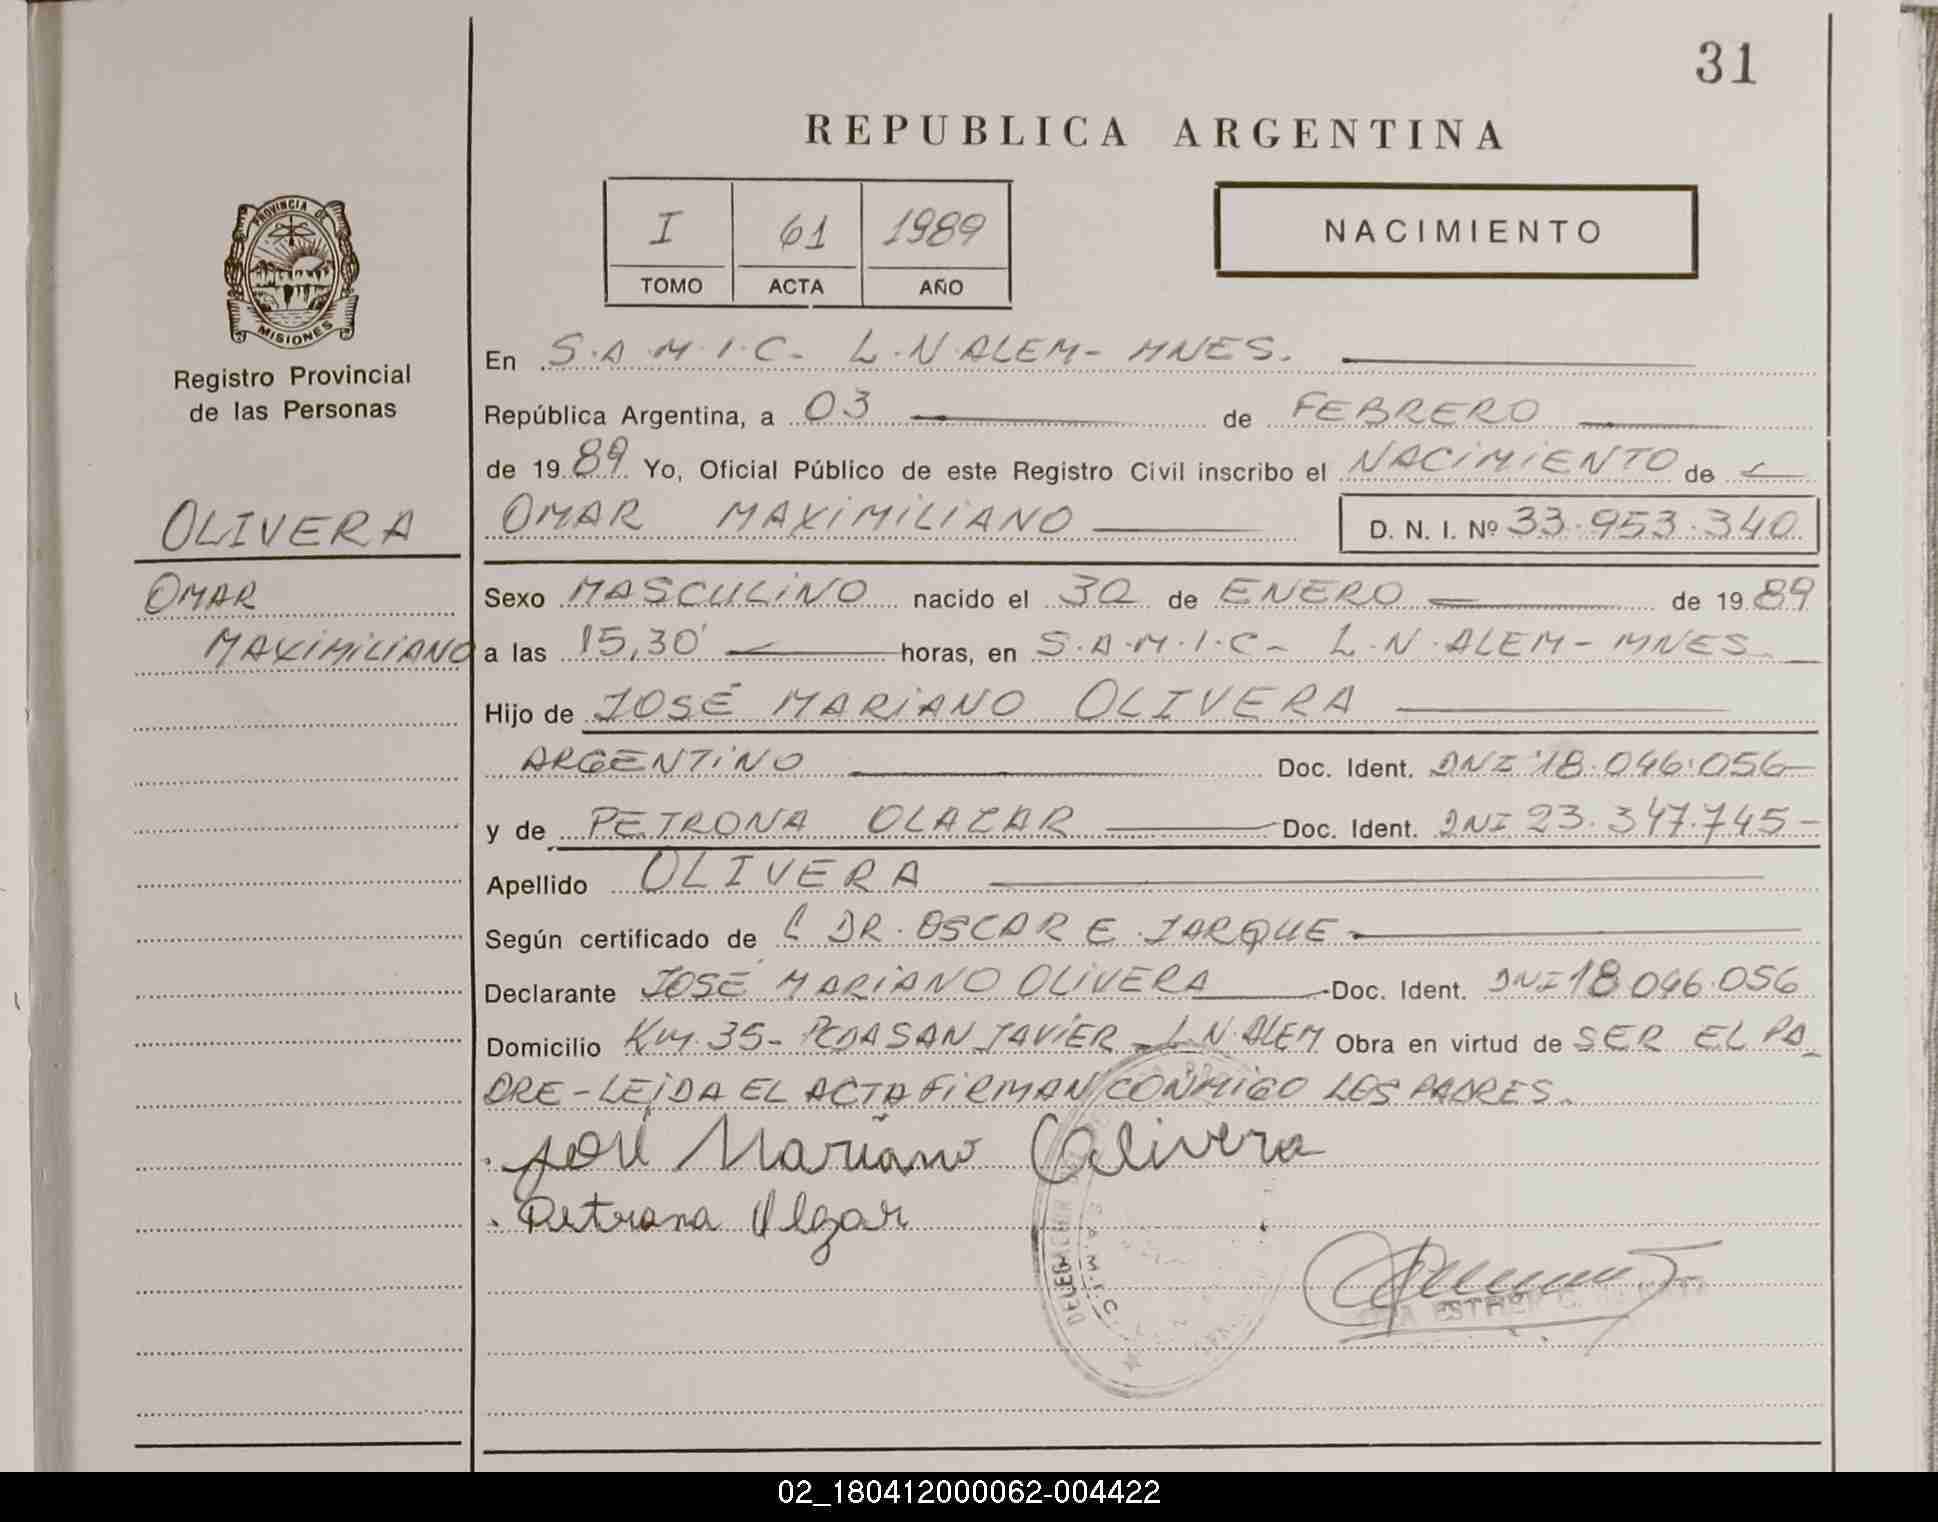 31
REPUBLICA ARGENTINA
I 61 1989
TOMO ACTA AÑO
NACIMIENTO
PROVINCIA DE
MISIONES
Registro Provincial
de las Personas
OLIVERA
OMAR
MAXIMILIANO
En S.A.M.I.C- L.N.ALEM- MNES.
República Argentina, a 03 de FEBRERO
de 1989 Yo, Oficial Público de este Registro Civil inscribo el NACIMIENTO de
OMAR MAXIMILIANO D. N. I. Nº 33.953.340
Sexo MASCULINO nacido el 30 de ENERO de 1989
a las 15,30' horas, en S.A.M.I.C- L.N.ALEM- MNES
Hijo de JOSÉ MARIANO OLIVERA
ARGENTINO Doc. Ident. DNI 18.046.056
y de PETRONA OLAZAR Doc. Ident. DNI 23.347.745
Apellido OLIVERA
Según certificado de DR. OSCAR E. JARQUE
Declarante JOSÉ MARIANO OLIVERA Doc. Ident. DNI 18 046.056
Domicilio Km. 35- PCDA SAN JAVIER - L.N.ALEM Obra en virtud de SER EL PA
DRE-LEIDA EL ACTA FIRMAN CONMIGO LOS PADRES.
José Mariano Olivera
Petrona Olgar
S.A.M.I.C.
02_180412000062-004422